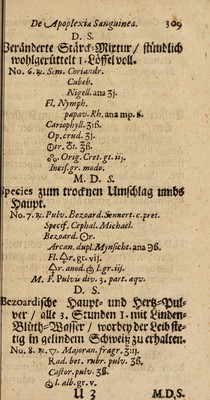 De Apoplexia Sanguinea. 309
D. S.
Veränderte Stärck-Mixtur / stündlich
wohlgerüttelt 1. Löffel voll.
No. 6. ℞. Sem. Coriandr.
Cubeb.
Nigell. ana ʒj.
Fl. Nymph.
papav. Rh. ana mp. s.
Cariophyll. ʒiß.
Op. crud. ʒj.
Orig. Cret. gt. iij.
Incis. gr. modo.
M. D. S.
Species zum trocknen Umschlag umbs
Haupt.
No. 7. ℞. Pulv. Bezoard. Sennert. c. pret.
Specif. Cephal. Michael.
Bezoard.
Arcan. dupl. Mynsicht. ana ℈ß.
Fl. gr. vij.
anod. l. gr. iij.
M. F. Pulvis div. 3. part. aeqv.
D. S.
Bezoardische Haupt- und Hertz-Pul-
ver / alle 3. Stunden 1. mit Linden-
Blüth-Wasser / worbey der Leib ste-
tig in gelindem Schweiß zu erhalten.
No. 8. ℞. Majoran. fragr. ʒiij.
Rad. bet. rubr. pulv. ʒß.
Castor. pulv. ʒß.
l. alb. gr. v.
U 3 M.D.S.